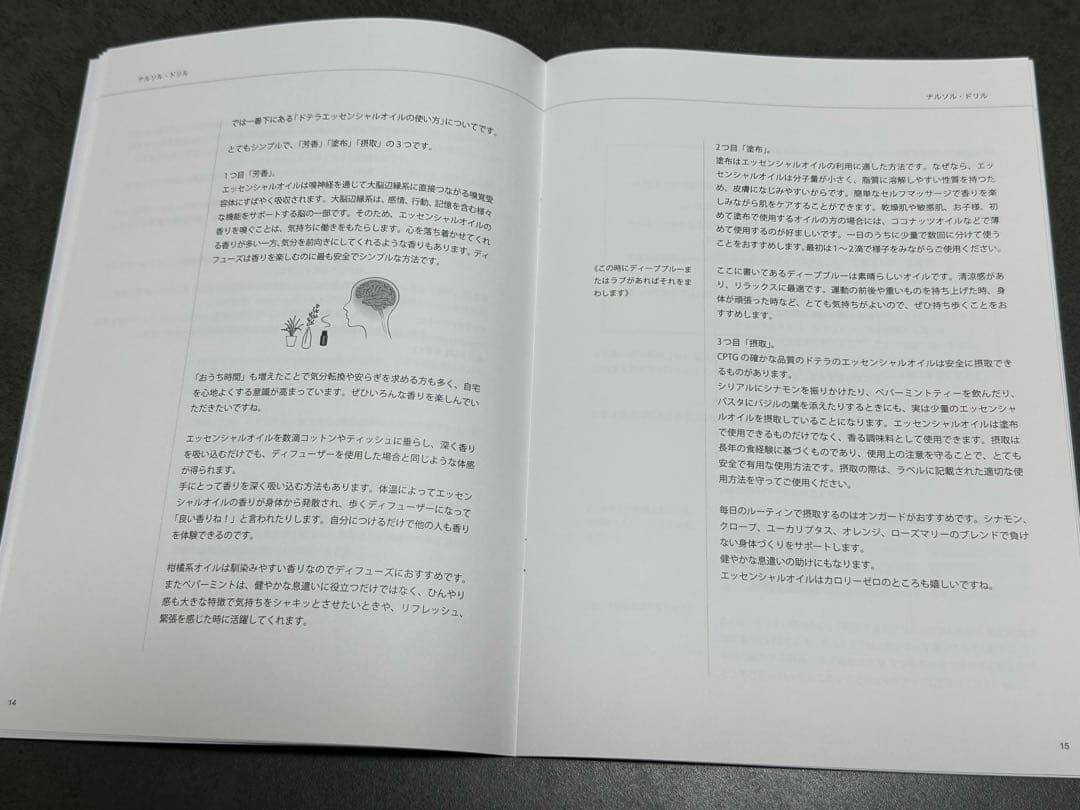 ナルソル・ドリル
では一番下にある「ドテラエッセンシャルオイルの使い方」についてです。
とてもシンプルで、「芳香」「塗布」「摂取」の３つです。
1つ目「芳香」。
エッセンシャルオイルは嗅神経を通じて大脳辺縁系に直接つながる嗅覚受
容体にすばやく吸収されます。大脳辺縁系は、感情、行動、記憶を含む様々
な機能をサポートする脳の一部です。そのため、エッセンシャルオイルの
香りを嗅ぐことは、気持ちに働きをもたらします。心を落ち着かせてくれ
る香りが多い一方、気分を前向きにしてくれるような香りもあります。ディ
フューズは香りを楽しむのに最も安全でシンプルな方法です。
「おうち時間」も増えたことで気分転換や安らぎを求める方も多く、自宅
を心地よくする意識が高まっています。ぜひいろんな香りを楽しんでい
ただきたいですね。
エッセンシャルオイルを数滴コットンやティッシュに垂らし、深く香り
を吸い込むだけでも、ディフューザーを使用した場合と同じような体感
が得られます。
手にとって香りを深く吸い込む方法もあります。体温によってエッセン
シャルオイルの香りが身体から発散され、歩くディフューザーになって
「良い香りね！」と言われたりします。自分につけるだけで他の人も香り
を体験できるのです。
柑橘系オイルは馴染みやすい香りなのでディフューズにおすすめです。
またペパーミントは、健やかな息遣いに役立つだけではなく、ひんやり
感も大きな特徴で気持ちをシャキッとさせたいときや、リフレッシュ、
緊張を感じた時に活躍してくれます。
14
ナルソル・ドリル
2つ目「塗布」。
塗布はエッセンシャルオイルの利用に適した方法です。なぜなら、エッ
センシャルオイルは分子量が小さく、脂質に溶解しやすい性質を持つた
め、皮膚になじみやすいからです。簡単なセルフマッサージで香りを楽
しみながら肌をケアすることができます。乾燥肌や敏感肌、お子様、初
めて塗布で使用するオイルの方の場合には、ココナッツオイルなどで薄
めて使用するのが好ましいです。一日のうちに少量で数回に分けて使う
ことをおすすめします。最初は1〜2滴で様子をみながらご使用ください。
《この時にディープブルーま
たはラブがあればそれをま
わします》
ここに書いてあるディープブルーは素晴らしいオイルです。清涼感があ
り、リラックスに最適です。運動の前後や重いものを持ち上げた時、身
体が頑張った時など、とても気持ちがよいので、ぜひ持ち歩くことをお
すすめします。
3つ目「摂取」。
CPTG の確かな品質のドテラのエッセンシャルオイルは安全に摂取でき
るものがあります。
シリアルにシナモンを振りかけたり、ペパーミントティーを飲んだり、
パスタにバジルの葉を添えたりするときにも、実は少量のエッセンシャ
ルオイルを摂取していることになります。エッセンシャルオイルは塗布
で使用できるものだけでなく、香る調味料として使用できます。摂取は
長年の食経験に基づくものであり、使用上の注意を守ることで、とても
安全で有用な使用方法です。摂取の際は、ラベルに記載された適切な使
用方法を守ってご使用ください。
毎日のルーティンで摂取するのはオンガードがおすすめです。シナモン、
クローブ、ユーカリプタス、オレンジ、ローズマリーのブレンドで負け
ない身体づくりをサポートします。
健やかな息遣いの助けにもなります。
エッセンシャルオイルはカロリーゼロのところも嬉しいですね。
15